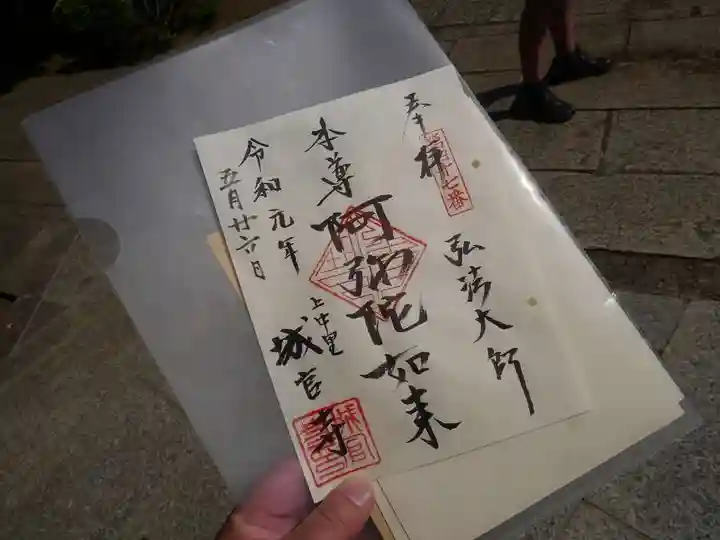 奉拝
弘法大師
本尊
阿弥陀如来
上中里
城官寺
令和元年
五月廿六日